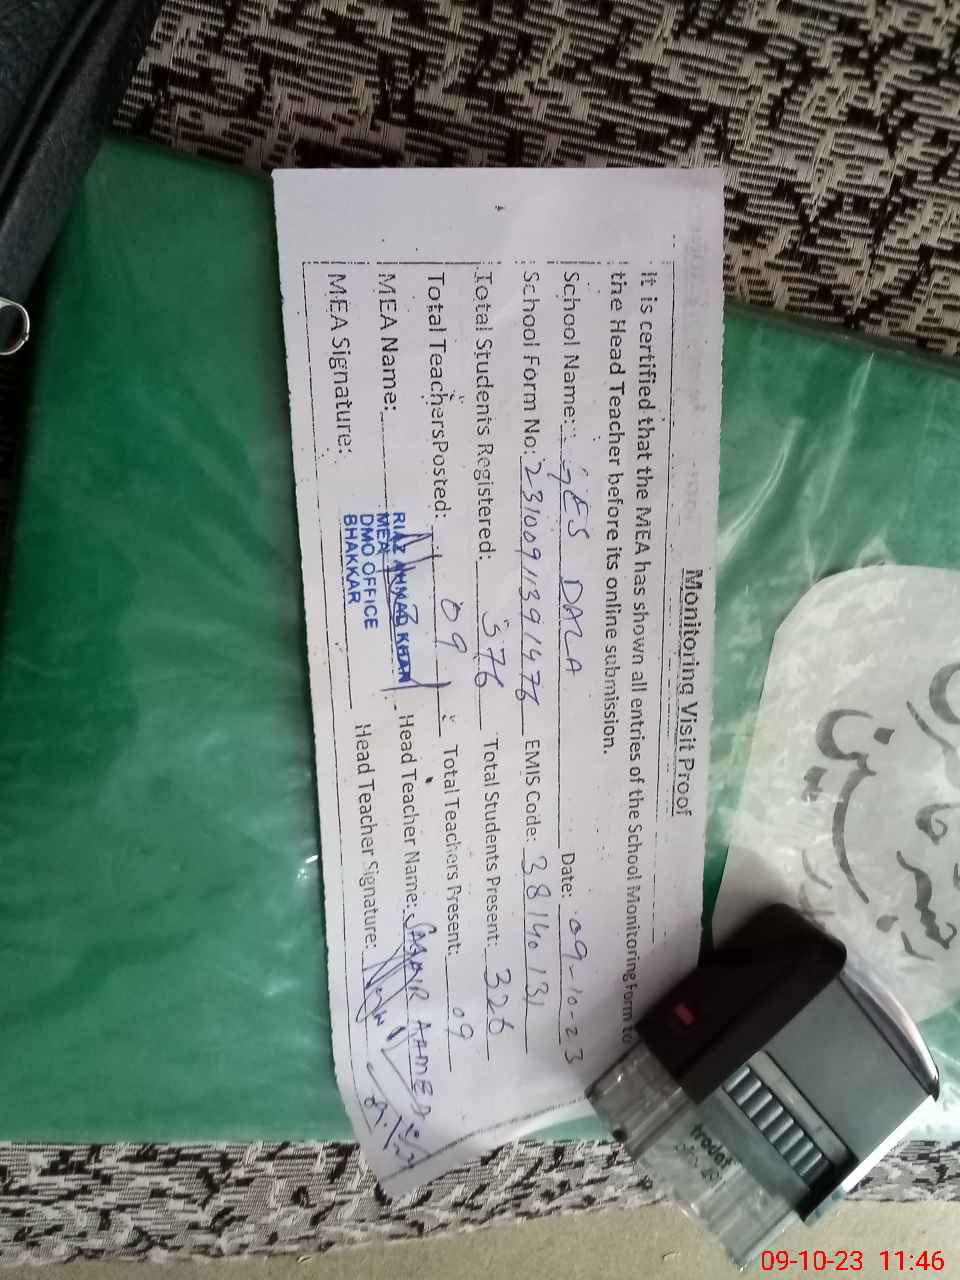 Monitoring Visit Proof
It is certified that the MEA has shown all entries of the School Monitoring Form to
the Head Teacher before its online submission.
School Name: GES DALA Date: 09-10-23
School Form No: 23100911391476 EMIS Code: 38140131
Total Students Registered: 376 Total Students Present: 326
Total Teachers Posted: 09 Total Teachers Present: 09
MEA Name: Head Teacher Name: AHMED
MEA Signature: Head Teacher Signature:
RIAZ AHMAD KHAN
MEA
DMO OFFICE
BHAKKAR
trodat
09-10-23 11:46